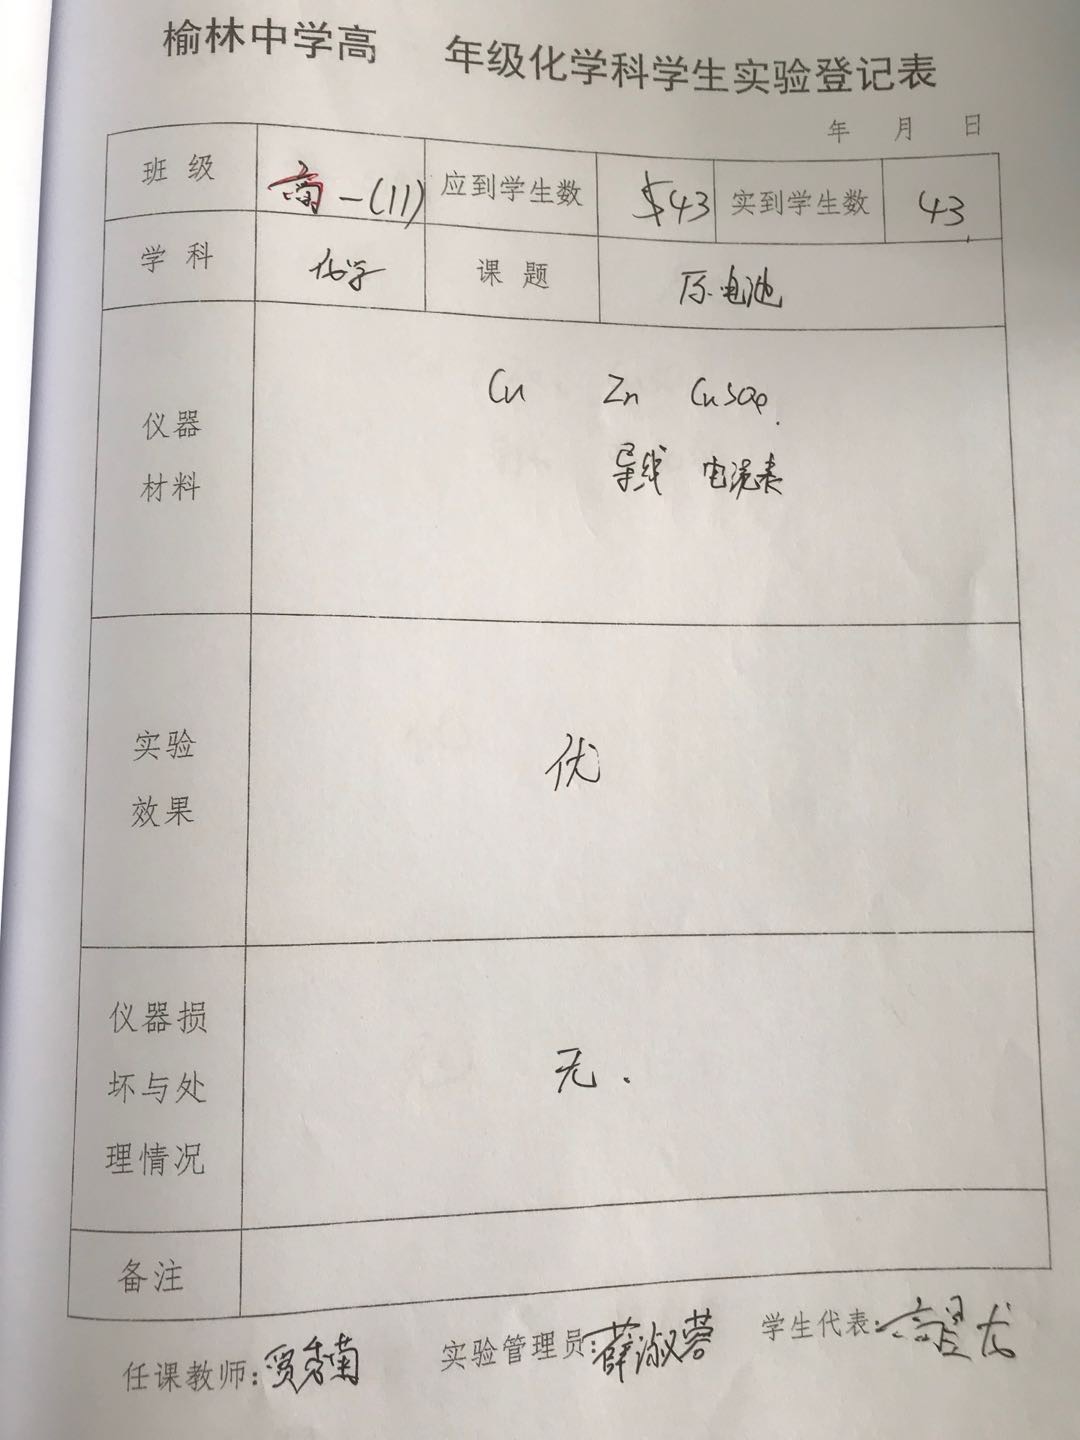 榆林中学高 年级化学科学生实验登记表
年 月 日
班 级 高一(11) 应到学生数 43 实到学生数 43
学 科 化学 课 题 原电池
仪器
材料
Cu Zn CuSO4
导线 电流表
实验
效果
优
仪器损
坏与处
理情况
无.
备注
任课教师: 贾秀菊 实验管理员: 薛淑蓉 学生代表: